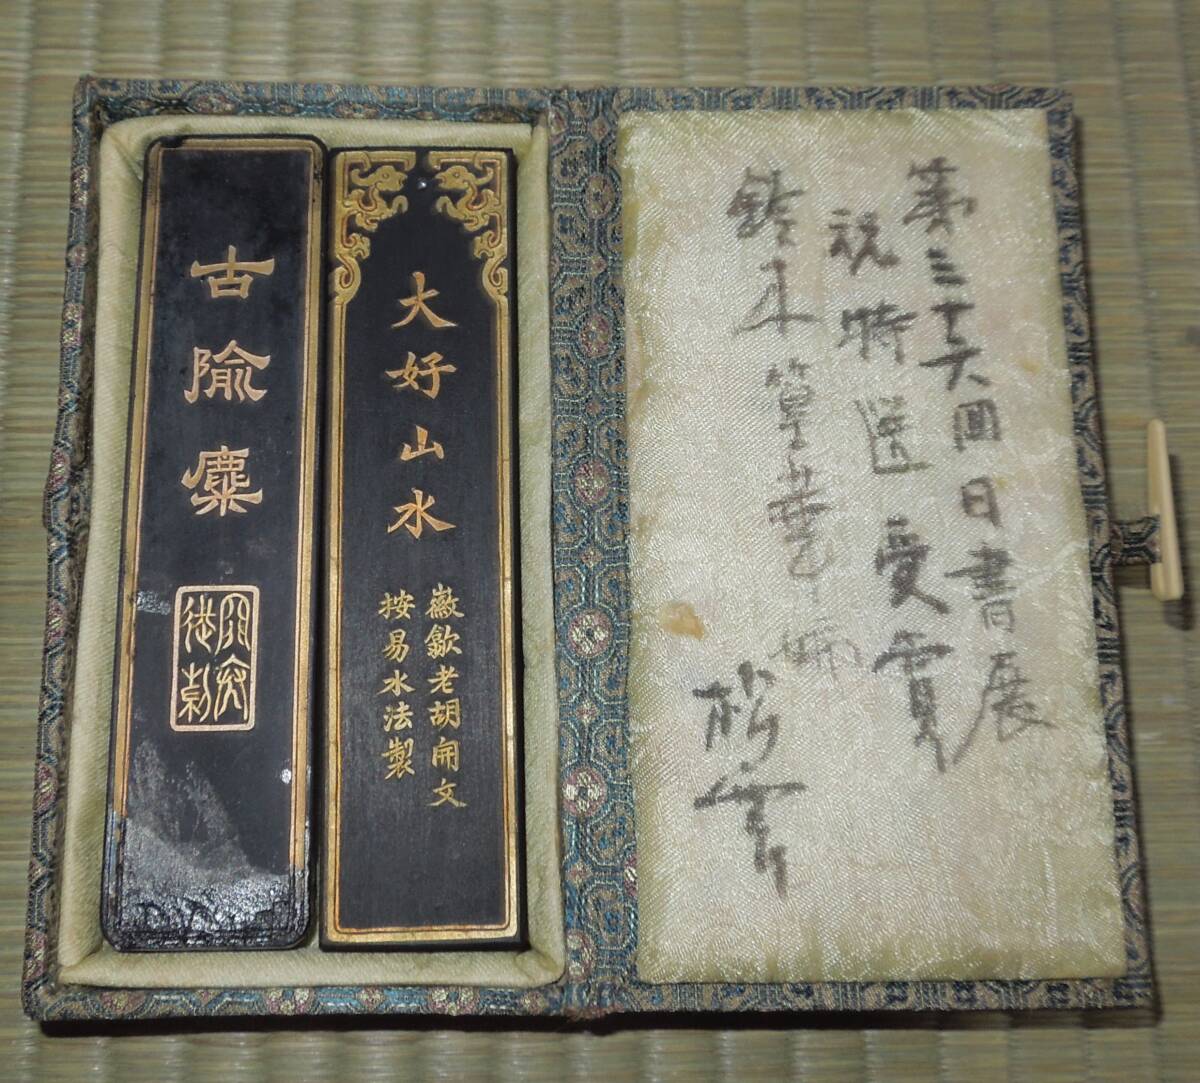 第三十六回日書展
祝特選受賞
鈴木草
松雲
大好山水
徽歙老胡開文
按易水法製
古隃麋